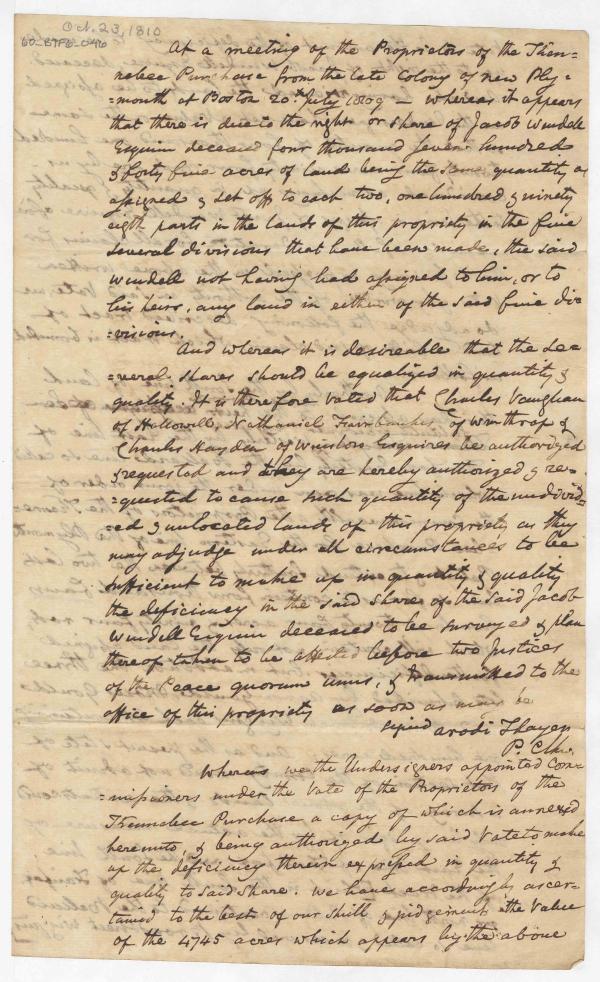 Oct. 23, 1810
60_B4F6_046
At a meeting of the Proprietors of the Thon-
nebec Purchase from the late Colony of new Ply=
=mouth at Boston 20th July 1809 — whereas it appears
that there is due to the right or share of Jacob Wendell
Esquire deceased four thousand seven hundred
& forty five acres of land being the same quantity as
assigned & set off to each two, one hundred & ninety
eigth parts in the lands of this propriety in the five
several divisions that have been made, the said
Wendell not having had assigned to him, or to
his heirs, any land in either of the said five di=
=visions.
And whereas it is desireable that the se=
=veral shares should be equalized in quantity &
quality. It is therefore voted that Charles Vaughan
of Hallowell, Nathaniel Fairbanks of Winthrop &
Charles Hayden of Winslow Esquires be authorized
& requested and they are hereby authorized & re=
=quested to cause such quantity of the undivid=
=ed & unlocated lands of this propriety as they
may adjudge under all circumstances to be
sufficient to make up in quantity & quality
the deficiency in the said share of the said Jacob
Wendell Esquire deceased to be surveyed & plan
thereof taken to be attested before two Justices
of the Peace quorum unus, & transmitted to the
office of this propriety as soon as may be
signed Arodi Thayer
P. Clk.
Whereas we the Undersigners appointed Com=
=missioners under the Vote of the Proprietors of the
Kennebec Purchase a copy of which is annexed
hereunto, & being authorized by said Vote to make
up the deficiency therein expressed in quantity &
quality to said share. We have accordingly ascer=
tained to the best of our skill & judgement the Value
of the 4745 acres which appears by the above